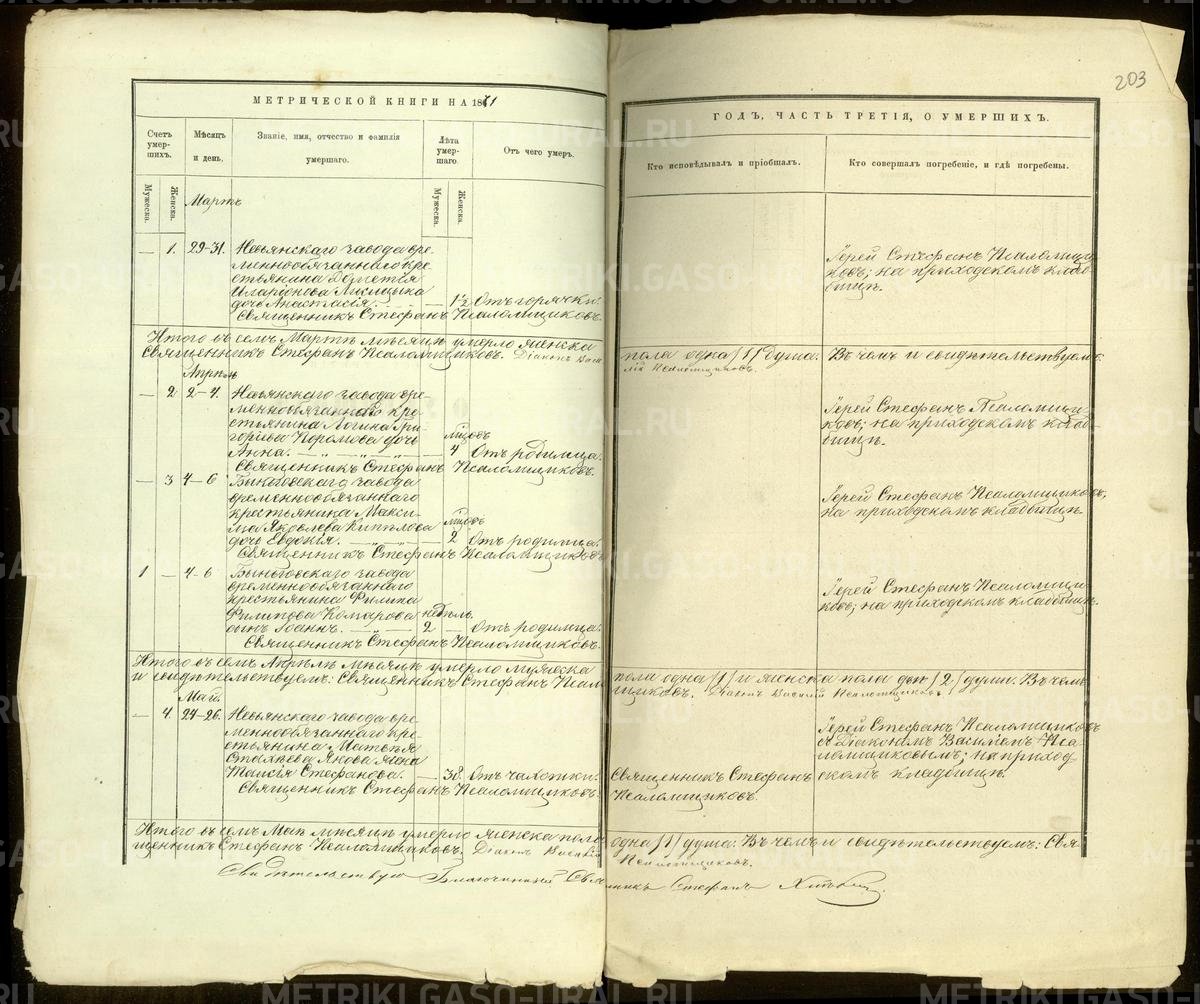 203
МЕТРИЧЕСКОЙ КНИГИ НА 1871
ГОДЪ, ЧАСТЬ ТРЕТІЯ, О УМЕРШИХЪ.
Счетъ умер-шихъ.
Мужеска.
Женска.
Мѣсяцъ и день.
Званіе, имя, отчество и фамилія умершаго.
Лѣта умер-шаго.
Мужеска.
Женска.
Отъ чего умеръ.
Кто исповѣдывалъ и пріобщалъ.
Кто совершалъ погребеніе, и гдѣ погребены.
Мартъ
— 1. 29-31. Невьянскаго завода вре-
меннообязаннаго кре-
стьянина
Иларіонова Лисицына
дочь Анастасія. — 1½ Отъ горячки.
Священникъ Стефанъ Псаломщиковъ.
Іерей Стефанъ Псаломщи-
ковъ; на приходскомъ клад-
бищѣ.
Итого въ семъ Мартѣ мѣсяцѣ умерло женска
пола одна /1/ душа. Въ чемъ и свидѣтельствуемъ
Священникъ Стефанъ Псаломщиковъ. Діаконъ Васи
лій Псаломщиковъ.
Апрѣль
— 2 2-4. Невьянскаго завода вре-
меннообязаннаго кре-
стьянина Логина Гри-
горьева дочь мѣсцовъ
Анна. — 4 Отъ родимца.
Священникъ Стефанъ Псаломщиковъ.
Іерей Стефанъ Псаломщи-
ковъ; на приходскомъ клад-
бищѣ.
— 3 4-6 Быньговскаго завода
временнообязаннаго
крестьянина Макси-
ма Яковлева мѣсцовъ
дочь Евдокія. — 2 Отъ родимца.
Священникъ Стефанъ Псаломщиковъ
Іерей Стефанъ Псаломщиковъ;
на приходскомъ кладбищѣ.
1 — 4-6 Быньговскаго завода
временнообязаннаго
крестьянина Филипа
Филипова Комарова недѣль.
сынъ Іоаннъ. 2 — Отъ родимца.
Священникъ Стефанъ Псаломщиковъ.
Іерей Стефанъ Псаломщи-
ковъ; на приходскомъ кладбищѣ.
Итого въ семъ Апрѣлѣ мѣсяцѣ умерло мужеска
пола одна /1/ и женска пола двѣ /2/ души. Въ чемъ
и свидѣтельствуемъ: Священникъ Стефанъ Псалом
щиковъ. Діаконъ Василій Псаломщиковъ.
Май.
— 4. 24-26. Невьянскаго завода вре-
меннообязаннаго кре-
стьянина Матвѣя
Стахѣева Янова жена
Таисія Стефанова. — 38. Отъ чахотки.
Священникъ Стефанъ Псаломщиковъ.
Священникъ Стефанъ
Псаломщиковъ.
Іерей Стефанъ Псаломщиковъ
съ Діакономъ Василіемъ Пса-
ломщиковымъ; на приход-
скомъ кладбищѣ.
Итого въ семъ Маѣ мѣсяцѣ умерло женска пола
одна /1/ душа. Въ чемъ и свидѣтельствуемъ: Свя-
щенникъ Стефанъ Псаломщиковъ. Діаконъ Василій
Псаломщиковъ.
Свидѣтельствую Благочинный Священникъ Стефанъ
METRIKI.GASO-URAL.RU